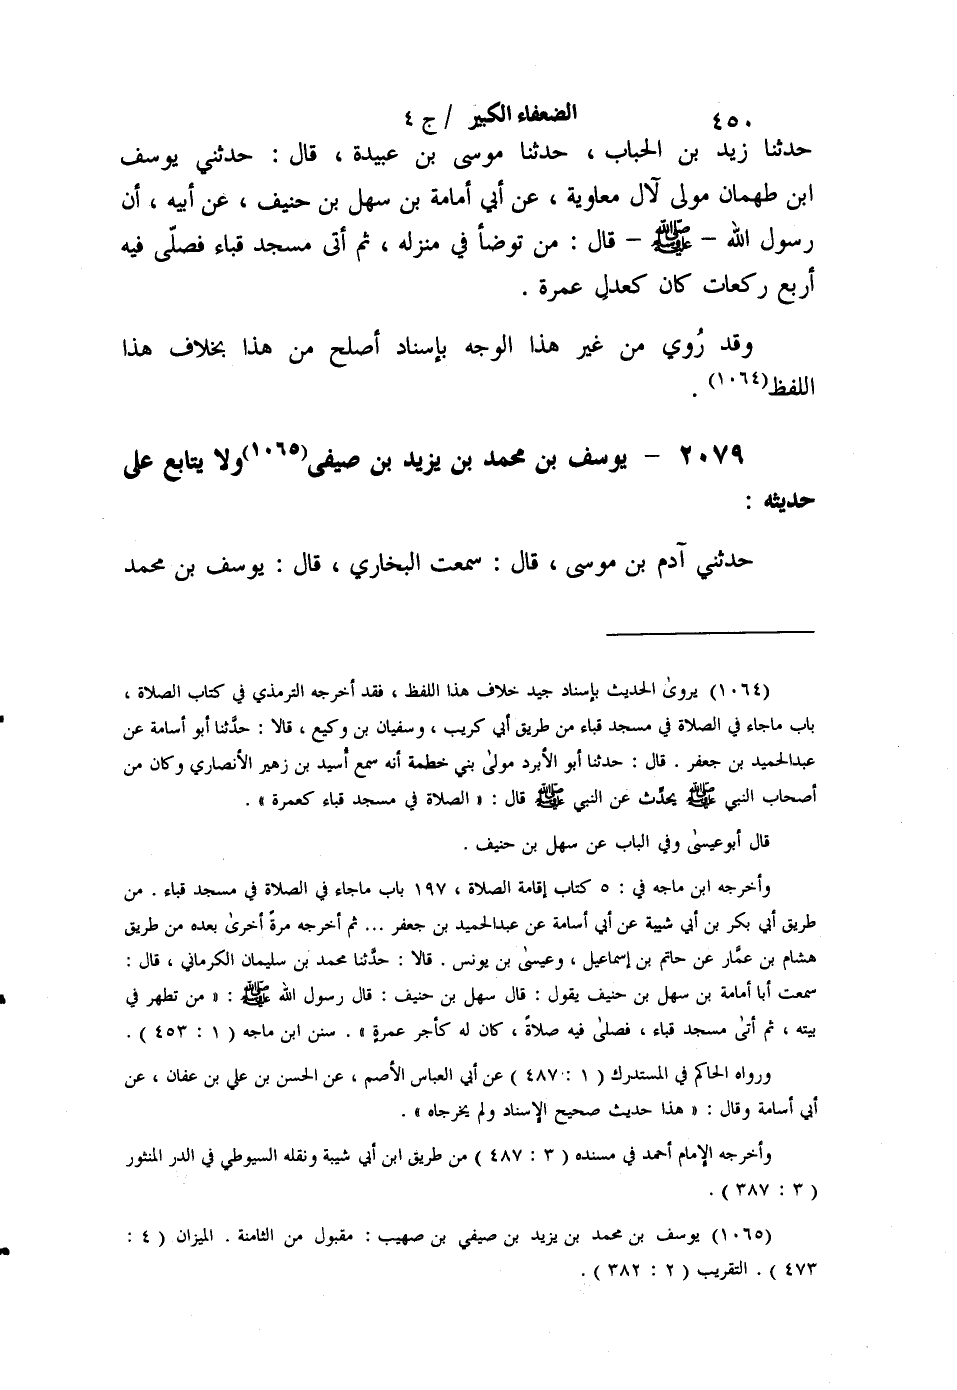 ٤٥٠ الضعفاء الكبير / ج ٤
حدثنا زيد بن الحباب ، حدثنا موسى بن عبيدة ، قال : حدثني يوسف
ابن طهمان مولى لآل معاوية ، عن أبي أمامة بن سهل بن حنيف ، عن أبيه ، أن
رسول الله – ﷺ – قال : من توضأ في منزله ، ثم أتى مسجد قباء فصلّى فيه
أربع ركعات كان كعدلِ عمرة .
وقد رُوي من غير هذا الوجه بإسناد أصلح من هذا بخلاف هذا
اللفظ(١٠٦٤) .
٢٠٧٩ – يوسف بن محمد بن يزيد بن صيفى(١٠٦٥)ولا يتابع على
حديثه :
حدثني آدم بن موسى ، قال : سمعت البخاري ، قال : يوسف بن محمد
(١٠٦٤) يروىٰ الحديث بإسناد جيد خلاف هذا اللفظ ، فقد أخرجه الترمذي في كتاب الصلاة ،
باب ماجاء في الصلاة في مسجد قباء من طريق أبي كريب ، وسفيان بن وكيع ، قالا : حدَّثنا أبو أسامة عن
عبدالحميد بن جعفر . قال : حدثنا أبو الأبرد مولىٰ بني خطمة أنه سمع أُسيد بن زهير الأنصاري وكان من
أصحاب النبي ﷺ يحدِّث عن النبي ﷺ قال : « الصلاة في مسجد قباء كعمرة » .
قال أبوعيسىٰ وفي الباب عن سهل بن حنيف .
وأخرجه ابن ماجه في : ٥ كتاب إقامة الصلاة ، ١٩٧ باب ماجاء في الصلاة في مسجد قباء . من
طريق أبي بكر بن أبي شيبة عن أبي أسامة عن عبدالحميد بن جعفر ... ثم أخرجه مرةً أخرىٰ بعده من طريق
هشام بن عمَّار عن حاتم بن إسماعيل ، وعيسىٰ بن يونس . قالا : حدَّثنا محمد بن سليمان الكرماني ، قال :
سمعت أبا أمامة بن سهل بن حنيف يقول : قال سهل بن حنيف : قال رسول الله ﷺ : « من تطهر في
بيته ، ثم أتىٰ مسجد قباء ، فصلىٰ فيه صلاةً ، كان له كأجر عمرةٍ » . سنن ابن ماجه ( ١ : ٤٥٣ ) .
ورواه الحاكم في المستدرك ( ١ : ٤٨٧ ) عن أبي العباس الأصم ، عن الحسن بن علي بن عفان ، عن
أبي أسامة وقال : « هذا حديث صحيح الإسناد ولم يخرجاه » .
وأخرجه الإمام أحمد في مسنده ( ٣ : ٤٨٧ ) من طريق ابن أبي شيبة ونقله السيوطي في الدر المنثور
( ٣ : ٣٨٧ ) .
(١٠٦٥) يوسف بن محمد بن يزيد بن صيفي بن صهيب : مقبول من الثامنة . الميزان ( ٤ :
٤٧٣ ) . التقريب ( ٢ : ٣٨٢ ) .